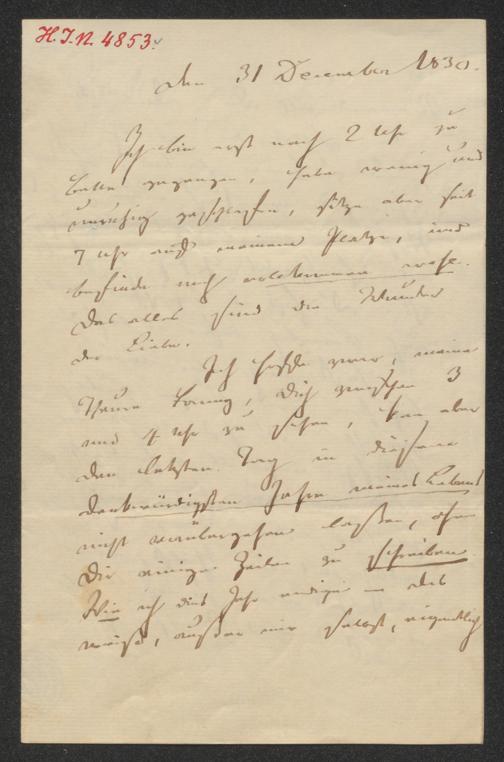 H.I.N. 4853.
den 31 December 1830.
Ich bin erst nach 2 Uhr zu
Bette gegangen, habe wenig und
unruhig geschlafen, sitze aber seit
7 Uhr auf meinem Platze, und
befinde mich vollkommen wohl.
Das alles sind die Wunder
der Liebe.
Ich hoffe zwar, meine
theure Fanny, Dich zwischen 3
und 4 Uhr zu sehen, kan aber
den letzten Tag in diesem
denkwürdigsten Jahre meines Lebens
nicht vorübergehen lassen, ohne
Dir einige Zeilen zu schreiben
Wie ich dies Jahr endige das
weiß, außer mir selbst, eigentlich